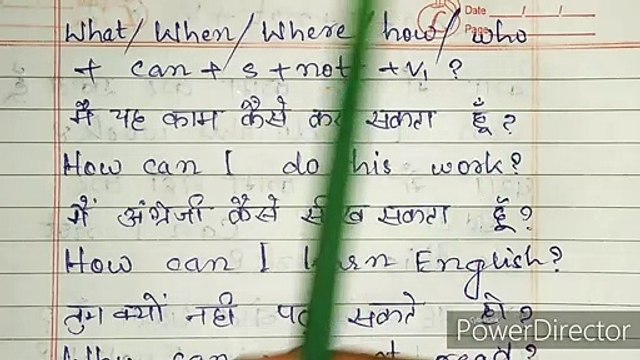 Date
Page
What/When/Where/how/who
+ can + s + not + V₁ ?
मैं यह काम कैसे कर सकता हूँ ?
How can I do this work?
मैं अंग्रेजी कैसे सीख सकता हूँ ?
How can I learn English?
तुम क्यों नही पढ़ सकते हो ?
PowerDirector
can